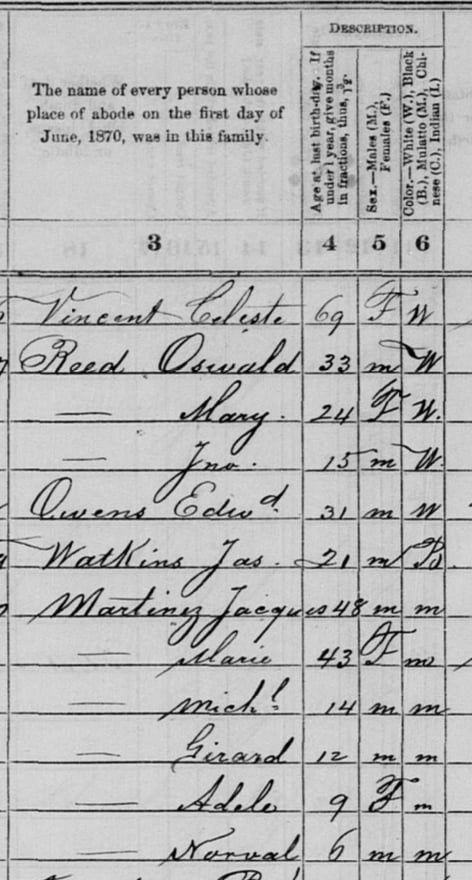 DESCRIPTION.
The name of every person whose
place of abode on the first day of
June, 1870, was in this family.
Age at last birth-day. If
under 1 year, give months
in fractions, thus, 3/12.
Sex.—Males (M.),
Females (F.)
Color.—White (W.), Black
(B.), Mulatto (M.), Chi-
nese (C.), Indian (I.)
3 4 5 6
Vincent Celeste 69 F W
Reed Oswald 33 m W
— Mary. 24 F W.
— Jno. 15 m W.
Owens Edwd. 31 m W
Watkins Jas. 21 m B
Martinez Jacques 48 m m
— Marie 43 F m
— Michl. 14 m m
— Girard 12 m m
— Adele 9 F m
— Norval 6 m m